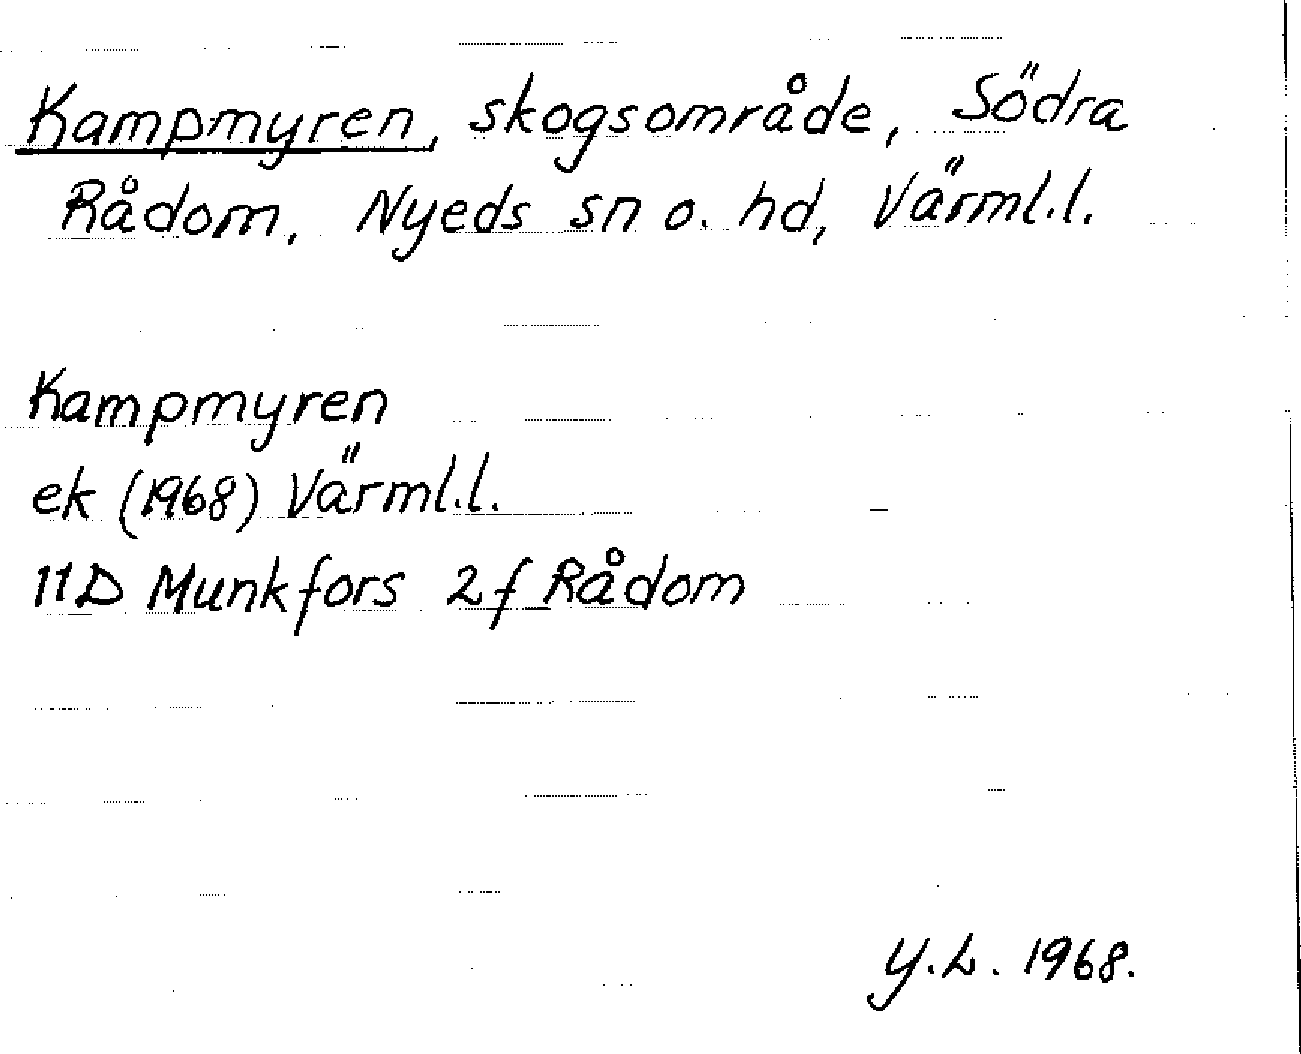 Kampmyren, skogsområde, Södra
Rådom, Nyeds sn o. hd, Värml.l.
Kampmyren
ek (1968) Värml.l.
11D Munkfors 2f Rådom
Y.L. 1968.